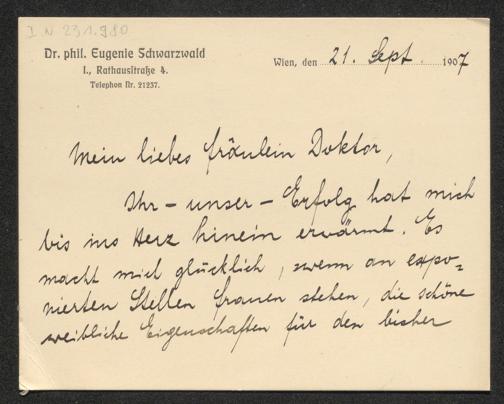 I. N 231.980
Dr. phil. Eugenie Schwarzwald
I., Rathausstraße 4.
Telephon Nr. 21237.
Wien, den 21. Sept. 1907
Mein liebes Fräulein Doktor,
Ihr – unser – Erfolg hat mich
bis ins Herz hinein erwärmt. Es
macht mich glücklich, wenn an expo=
nierten Stellen Frauen stehen, die schöne
weibliche Eigenschaften für den bisher